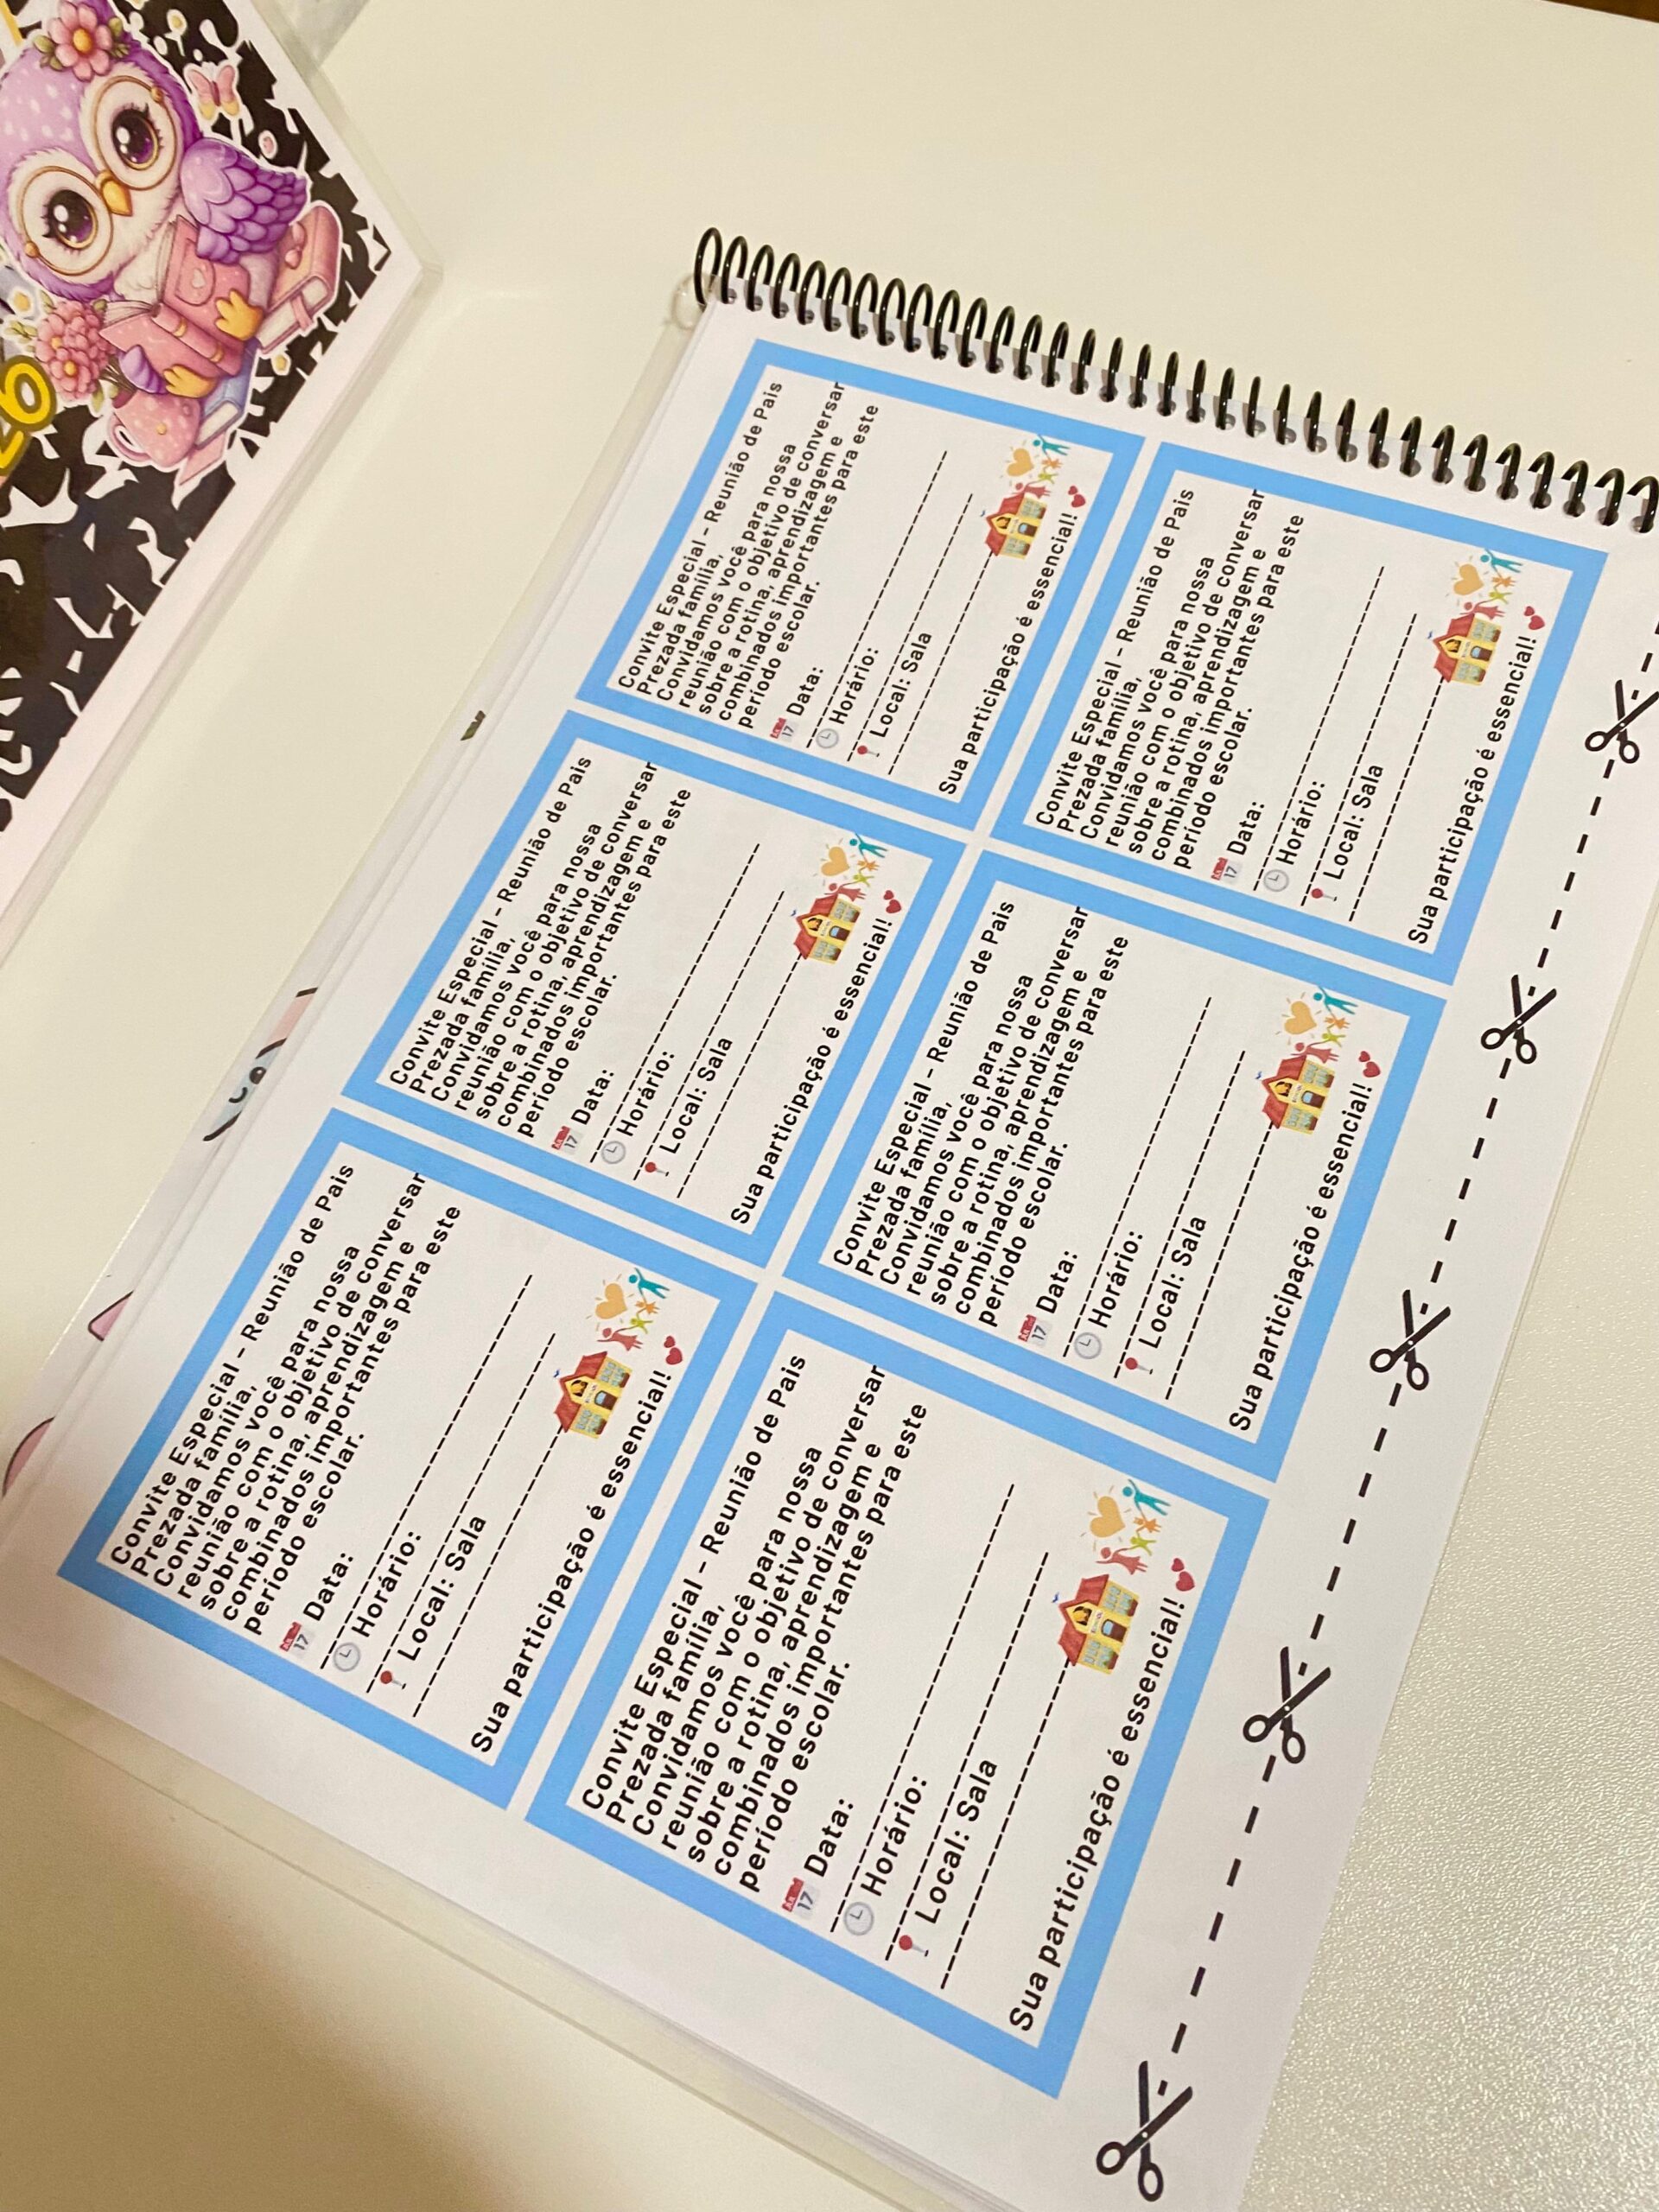 26
Convite Especial - Reunião de Pais
Prezada família,
Convidamos você para nossa
reunião com o objetivo de conversar
sobre a rotina, aprendizagem e
combinados importantes para este
período escolar.
17 Data:
Horário:
Local: Sala
Sua participação é essencial!
Convite Especial - Reunião de Pais
Prezada família,
Convidamos você para nossa
reunião com o objetivo de conversar
sobre a rotina, aprendizagem e
combinados importantes para este
período escolar.
17 Data:
Horário:
Local: Sala
Sua participação é essencial!
Convite Especial - Reunião de Pais
Prezada família,
Convidamos você para nossa
reunião com o objetivo de conversar
sobre a rotina, aprendizagem e
combinados importantes para este
período escolar.
17 Data:
Horário:
Local: Sala
Sua participação é essencial!
Convite Especial - Reunião de Pais
Prezada família,
Convidamos você para nossa
reunião com o objetivo de conversar
sobre a rotina, aprendizagem e
combinados importantes para este
período escolar.
17 Data:
Horário:
Local: Sala
Sua participação é essencial!
Convite Especial - Reunião de Pais
Prezada família,
Convidamos você para nossa
reunião com o objetivo de conversar
sobre a rotina, aprendizagem e
combinados importantes para este
período escolar.
17 Data:
Horário:
Local: Sala
Sua participação é essencial!
Convite Especial - Reunião de Pais
Prezada família,
Convidamos você para nossa
reunião com o objetivo de conversar
sobre a rotina, aprendizagem e
combinados importantes para este
período escolar.
17 Data:
Horário:
Local: Sala
Sua participação é essencial!